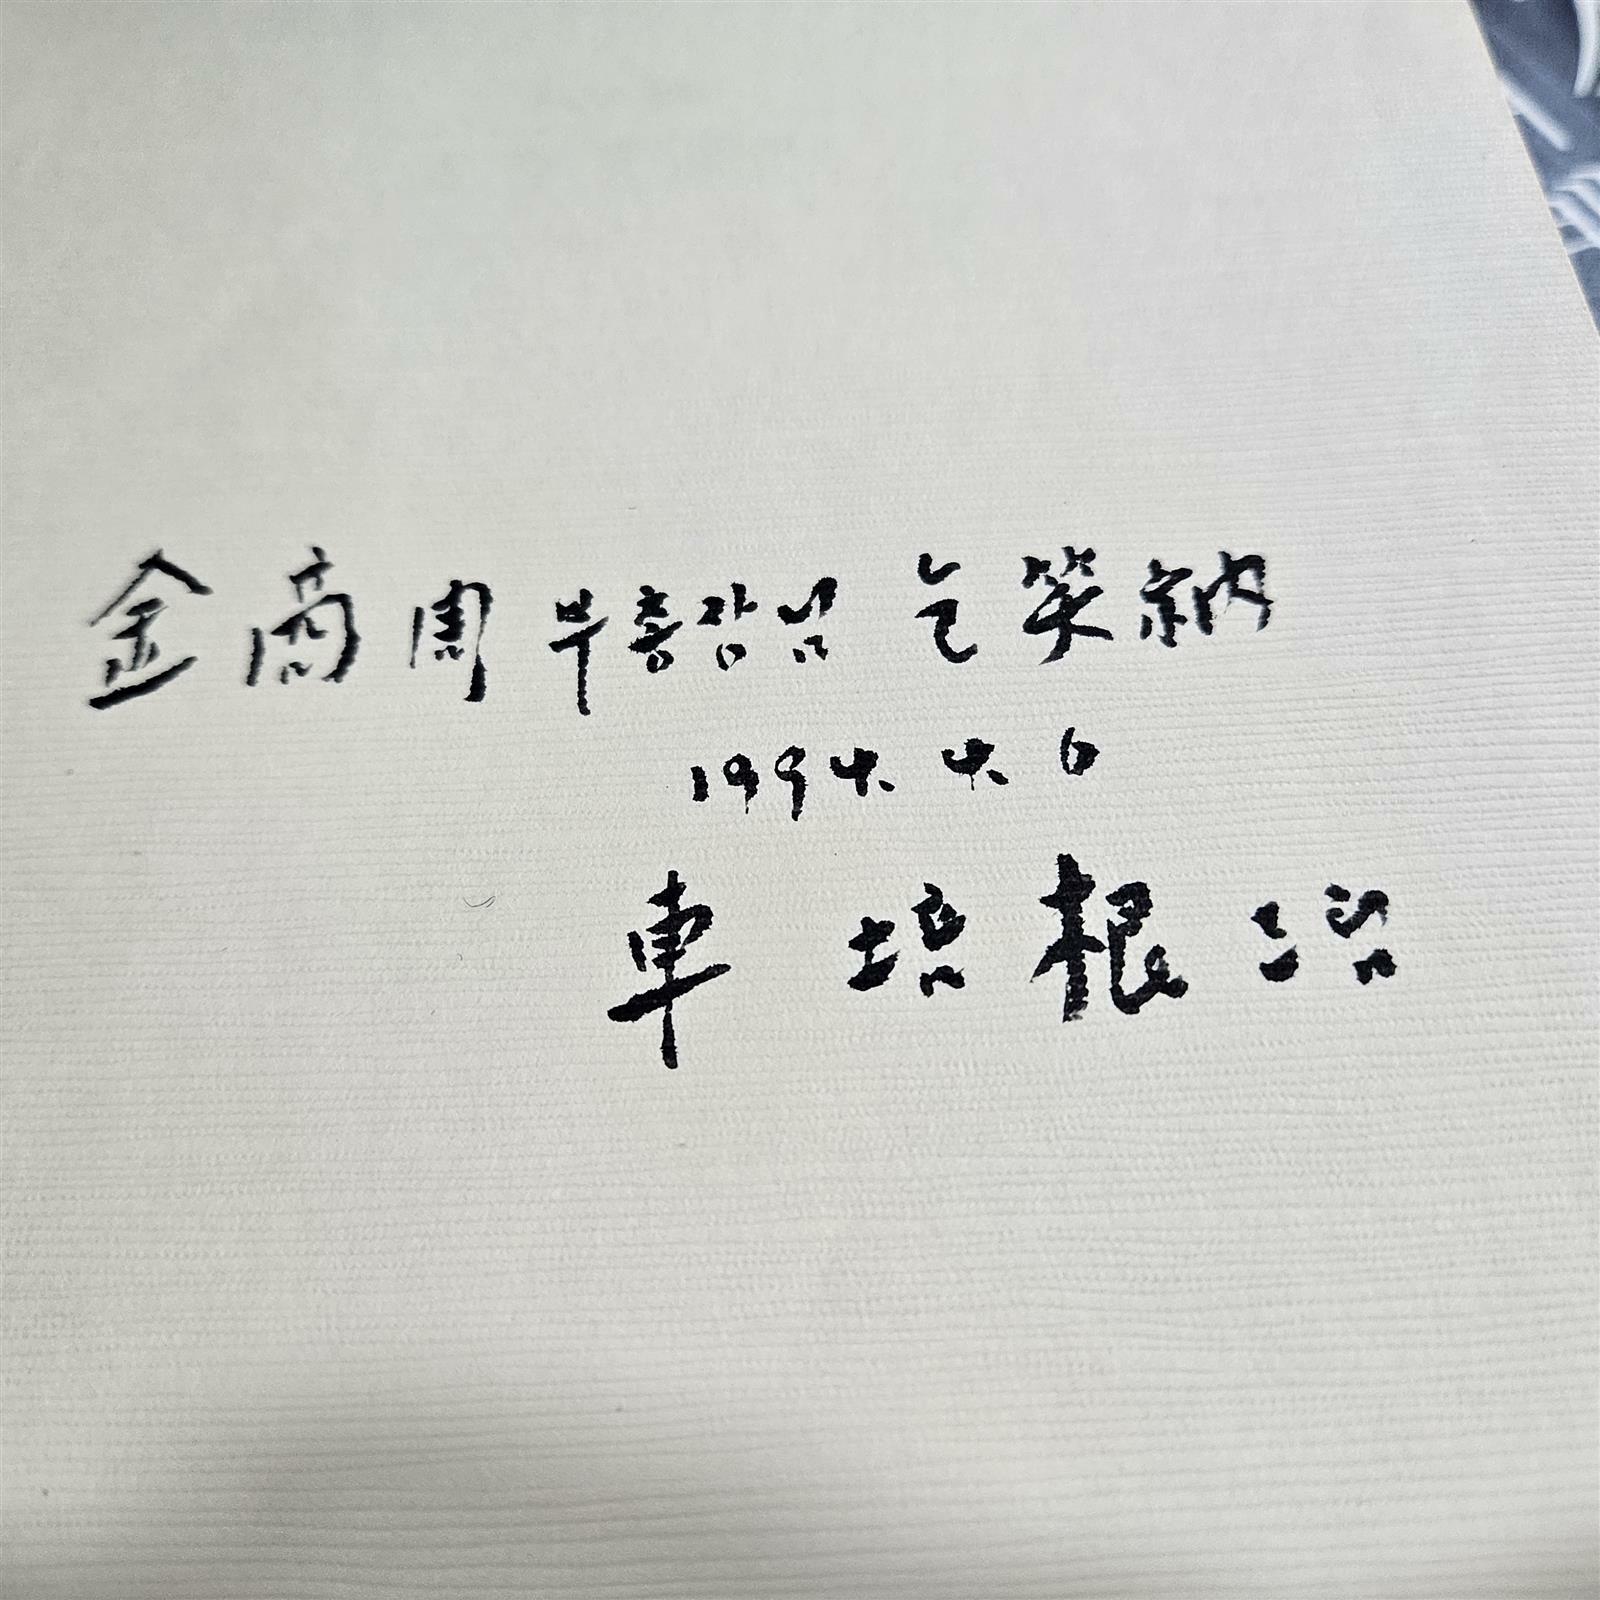 金商周 부총장님 乞笑納
1994. 4. 6
車培根